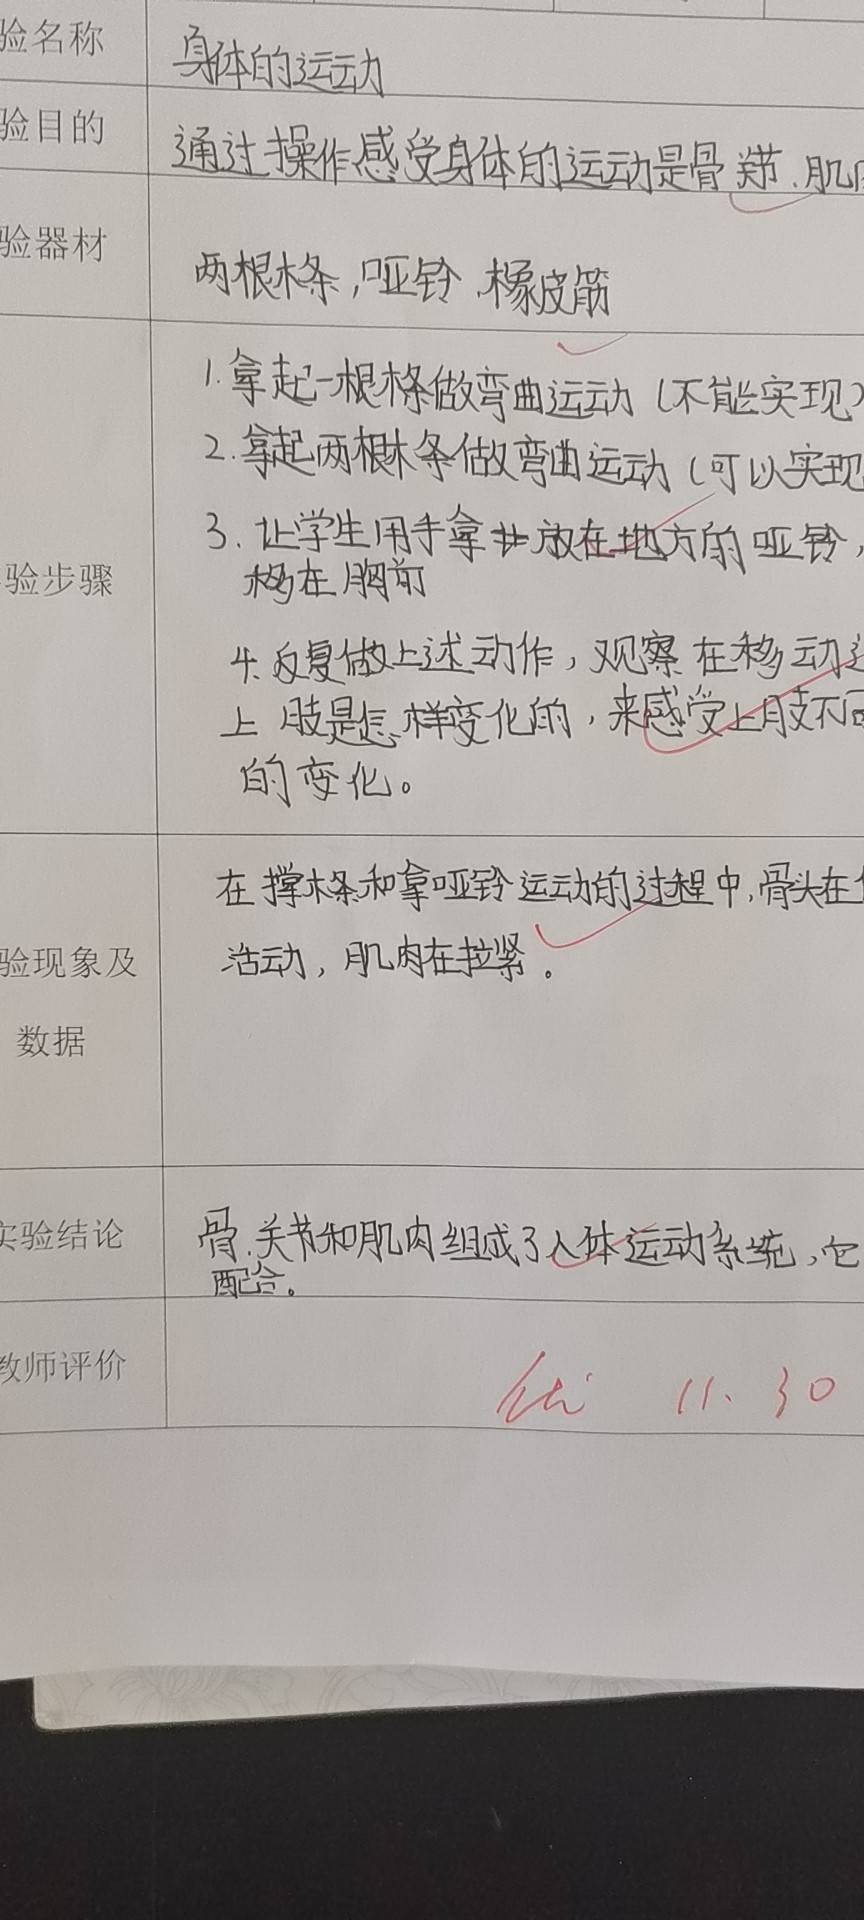 验名称
身体的运动
验目的
通过操作感受身体的运动是骨关节、肌
验器材
两根木条，哑铃、橡皮筋
验步骤
1.拿起一根木条做弯曲运动（不能实现）
2.拿起两根木条做弯曲运动（可以实现
3.让学生用手拿放在地方的哑铃，
移在胸前
4.反复做上述动作，观察在移动
上肢是怎样变化的，来感受上肢不同
的变化。
验现象及
数据
在撑木条和拿哑铃运动的过程中，骨头在
活动，肌肉在拉紧。
实验结论
骨、关节和肌肉组成了人体运动系统，它
配合。
教师评价
11.30